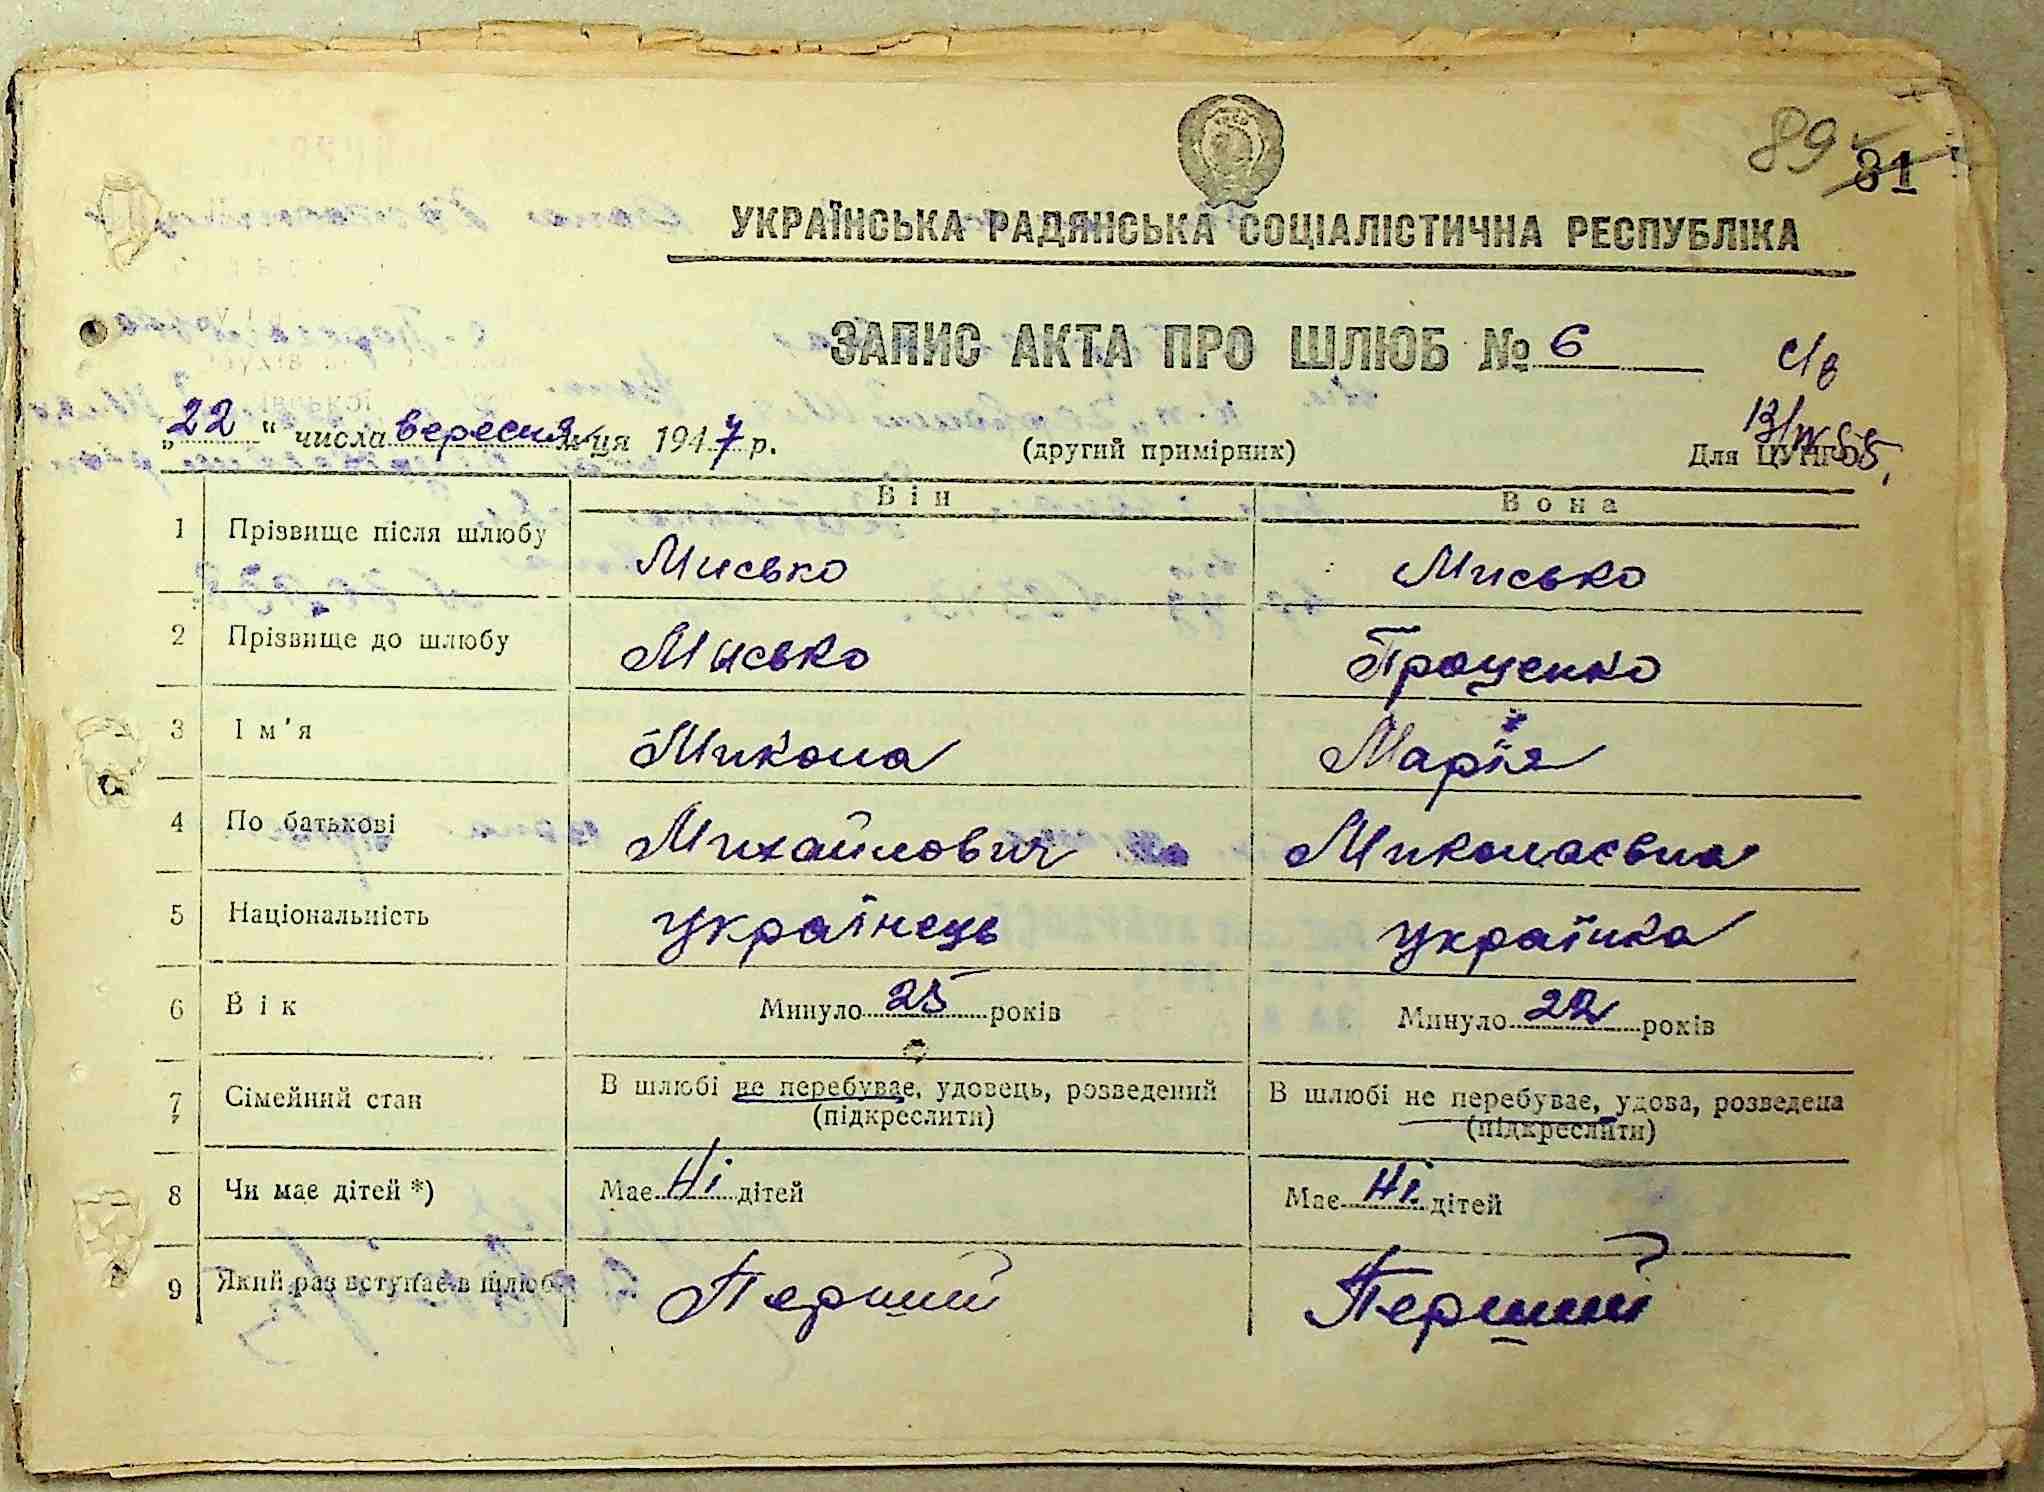 89
31
УКРАЇНСЬКА РАДЯНСЬКА СОЦІАЛІСТИЧНА РЕСПУБЛІКА
ЗАПИС АКТА ПРО ШЛЮБ № 6
с/в
„22“ числа вересня м-ця 1947 р. (другий примірник) Для
Він Вона
1 Прізвище після шлюбу Мисько Мисько
2 Прізвище до шлюбу Мисько Проценко
3 Ім'я Микола Марія
4 По батькові Михайлович Миколаєвна
5 Національність українець українка
6 Вік Минуло 25 років Минуло 22 років
7 Сімейний стан В шлюбі не перебуває, удовець, розведений (підкреслити) В шлюбі не перебуває, удова, розведена (підкреслити)
8 Чи має дітей *) Має Ні дітей Має Ні дітей
9 Який раз вступає в шлюб Перший Перший